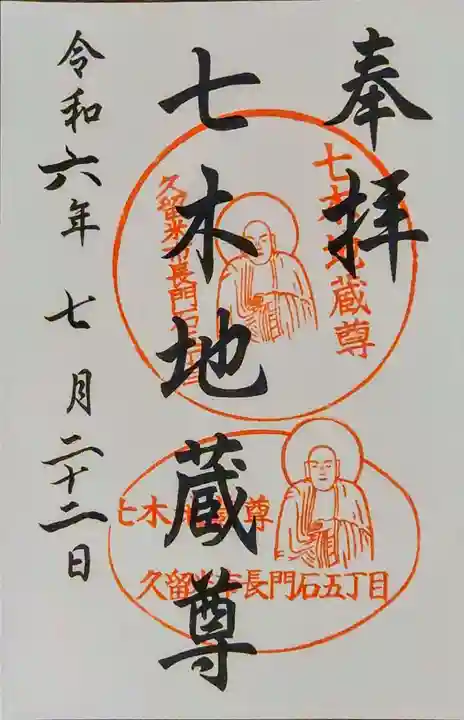 奉拝
七木地蔵尊
令和六年 七月二十二日
七木地蔵尊
久留米市長門石五丁目
七木地蔵尊
久留米市長門石五丁目